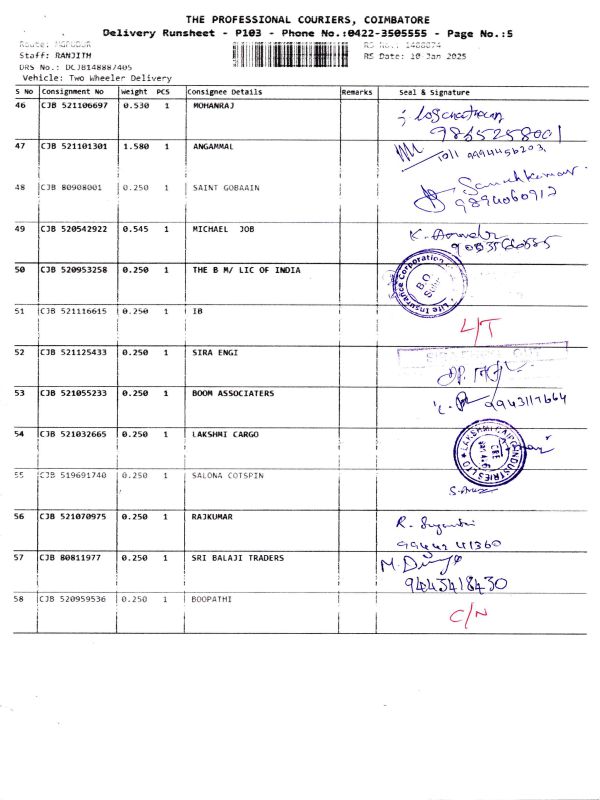 THE PROFESSIONAL COURIERS, COIMBATORE
Delivery Runsheet - P103 - Phone No.:0422-3505555 - Page No.:5
Route:
RS No.: 1488874
Staff: RANJITH
RS Date: 10 Jan 2025
DRS No.: DCJB148887405
Vehicle: Two Wheeler Delivery
S No Consignment No Weight PCS Consignee Details Remarks Seal & Signature
46 CJB 521106697 0.530 1 MOHANRAJ
9865258001
47 CJB 521101301 1.580 1 ANGAMMAL
9994456203
48 CJB 80908001 0.250 1 SAINT GOBAAIN
9894060912
49 CJB 520542922 0.545 1 MICHAEL JOB
K.
50 CJB 520953258 0.250 1 THE B M/ LIC OF INDIA
Life Insurance Corporation
B.O.
51 CJB 521116615 0.250 1 IB
L/T
52 CJB 521125433 0.250 1 SIRA ENGI
53 CJB 521055233 0.250 1 BOOM ASSOCIATERS
9943117664
54 CJB 521032665 0.250 1 LAKSHMI CARGO
LAKSHMI CARGO INDUSTRIES LTD
CBE
55 CJB 519691740 0.250 1 SALONA COTSPIN
56 CJB 521070975 0.250 1 RAJKUMAR
R.
99442 41360
57 CJB 80811977 0.250 1 SRI BALAJI TRADERS
M.
9443418430
58 CJB 520959536 0.250 1 BOOPATHI
C/N